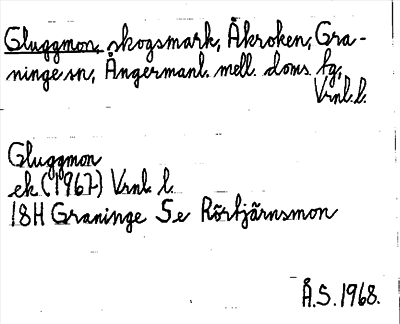 Gluggmon, skogsmark, Åkroken, Gra-
ninge sn, Ångermanl. mell. doms. fg,
Vrnl. l.
Gluggmon
ek (1967) Vrnl. l.
18H Graninge 5e Rörtjärnsmon
Å.S. 1968.